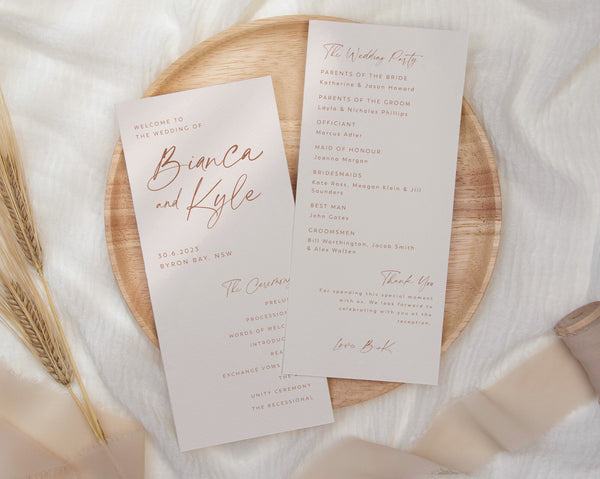 WELCOME TO
THE WEDDING OF
Bianca
and Kyle
30.6.2023
BYRON BAY, NSW
The Ceremon
PRELU
PROCESSION
WORDS OF WELC
INTRODUC
REA
EXCHANGE VOWS
THE
UNITY CEREMONY
THE RECESSIONAL
The Wedding Party
PARENTS OF THE BRIDE
Katherine & Jason Howard
PARENTS OF THE GROOM
Layla & Nicholas Phillips
OFFICIANT
Marcus Adler
MAID OF HONOUR
Joanna Morgan
BRIDESMAIDS
Kate Ross, Meagan Klein & Jill
Saunders
BEST MAN
John Gates
GROOMSMEN
Bill Worthington, Jacob Smith
& Alex Walten
Thank You
For spending this special moment
with us. We look forward to
celebrating with you at the
reception.
Love B & K